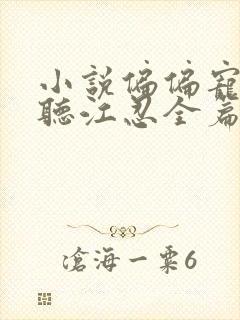 小說偏偏寵
聽江忍全篇
滄海一粟6